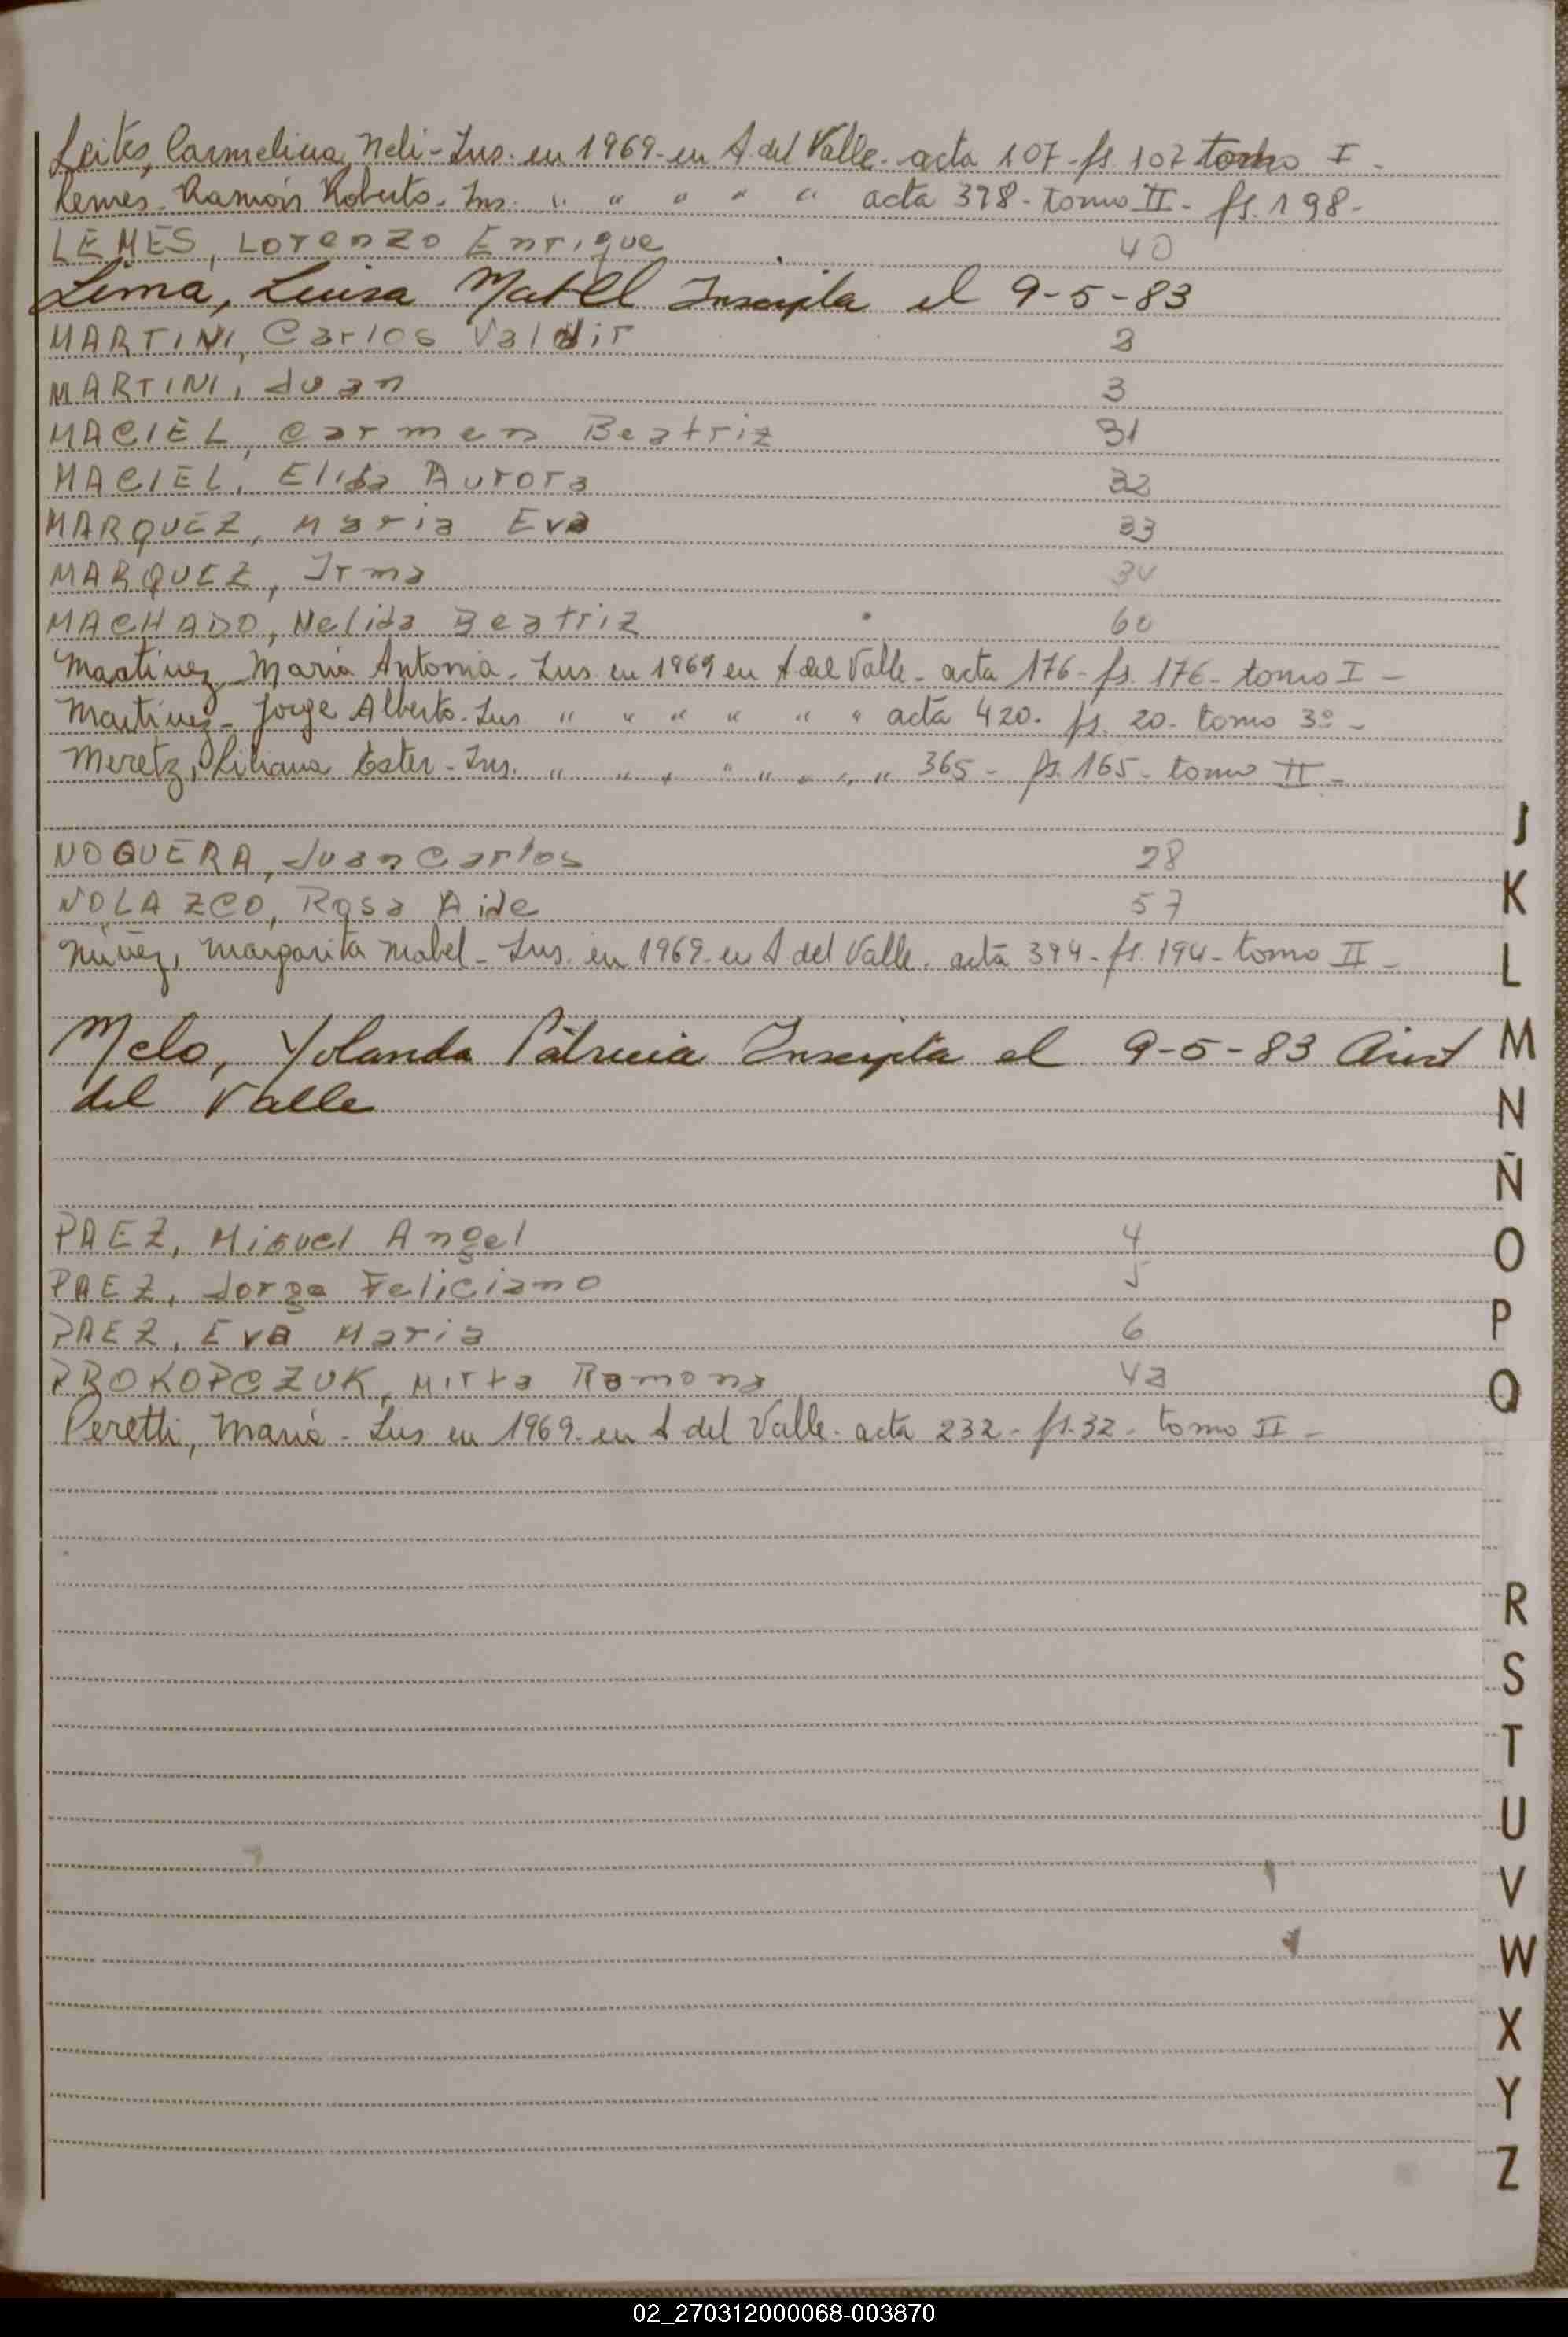 Leites, Carmelina Neli - Ins. en 1969 - en A. del Valle - acta 107 - fs. 107 tomo I -
Lemes - Ramón Roberto - Ins. " " " " " acta 398 - tomo II - fs. 198 -
LEMES, Lorenzo Enrique 40
Lima, Luisa Mabel Inscripta el 9-5-83
MARTINI, Carlos Valdir 2
MARTINI, Juan 3
MACIEL, Carmen Beatriz 31
MACIEL, Elida Aurora 32
MARQUEZ, Maria Eva 33
MARQUEZ, Irma 34
MACHADO, Nelida Beatriz 60
Martinez - Maria Antonia - Ins. en 1969 en A del Valle - acta 176 - fs. 176 - tomo I -
Martinez - Jorge Alberto - Ins " " " " " " acta 420 - fs. 20 - tomo 3º -
Meretz, Liliana Ester - Ins. " " " " " " " " 365 - fs. 165 - tomo II -
J
NOGUERA, Juan Carlos 28
K
NOLAZCO, Rosa Aide 57
Núñez, Margarita Mabel - Ins. en 1969 - en A del Valle - acta 394 - fs. 194 - tomo II -
L
Melo, Yolanda Patricia Inscripta el 9-5-83 Arist
M
del Valle
N
Ñ
PAEZ, Miguel Angel 4
O
PAEZ, Jorge Feliciano 5
P
PAEZ, Eva Maria 6
PROKOPCZUK, Mirta Ramona
Q
Peretti, Maria - Ins en 1969 - en A del Valle - acta 232 - fs. 32 - tomo II -
R
S
T
U
V
W
X
Y
Z
02_270312000068-003870